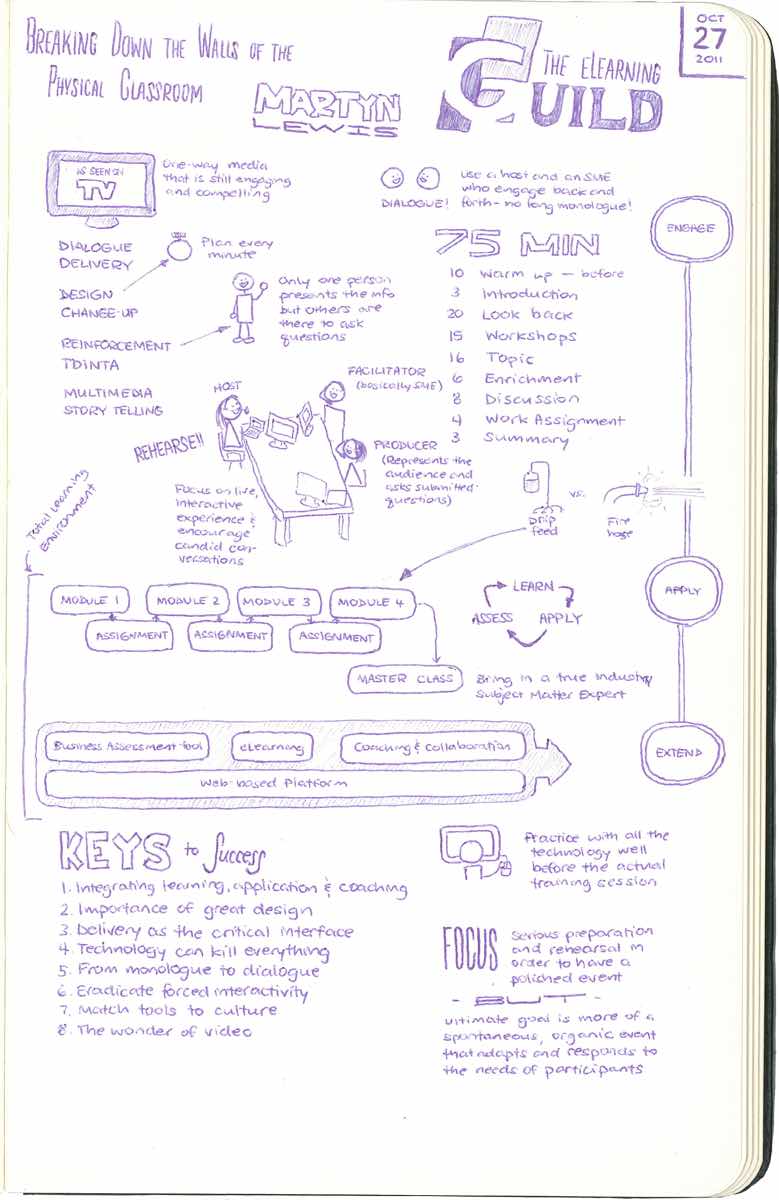 BREAKING DOWN THE WALLS OF THE
PHYSICAL CLASSROOM
MARTYN
LEWIS
THE ELEARNING
GUILD
OCT
27
2011
AS SEEN ON
TV
One-way media
that is still engaging
and compelling
DIALOGUE!
Use a host and an SME
who engage back and
forth - no long monologue!
ENGAGE
DIALOGUE
DELIVERY
Plan every
minute
DESIGN
CHANGE-UP
REINFORCEMENT
TDINTA
MULTIMEDIA
STORY TELLING
Only one person
presents the info
but others are
there to ask
questions
75 MIN
10 Warm up - before
3 Introduction
20 Look back
15 Workshops
16 Topic
6 Enrichment
8 Discussion
4 Work Assignment
3 Summary
REHEARSE!!
HOST
FACILITATOR
(basically SME)
PRODUCER
(Represents the
audience and
asks submitted
questions)
Focus on live,
interactive
experience &
encourage
candid con-
versations
Drip
feed
vs.
Fire
hose
Total Learning
Environment
MODULE 1
MODULE 2
MODULE 3
MODULE 4
ASSIGNMENT
ASSIGNMENT
ASSIGNMENT
LEARN
ASSESS
APPLY
APPLY
MASTER CLASS
Bring in a true industry
Subject Matter Expert
Business Assessment tool
eLearning
Coaching & Collaboration
Web-based Platform
EXTEND
KEYS to Success
1. Integrating learning, application & coaching
2. Importance of great design
3. Delivery as the critical interface
4. Technology can kill everything
5. From monologue to dialogue
6. Eradicate forced interactivity
7. Match tools to culture
8. The wonder of video
Practice with all the
technology well
before the actual
training session
FOCUS
Serious preparation
and rehearsal in
order to have a
polished event
- BUT -
ultimate goal is more of a
spontaneous, organic event
that adapts and responds to
the needs of participants